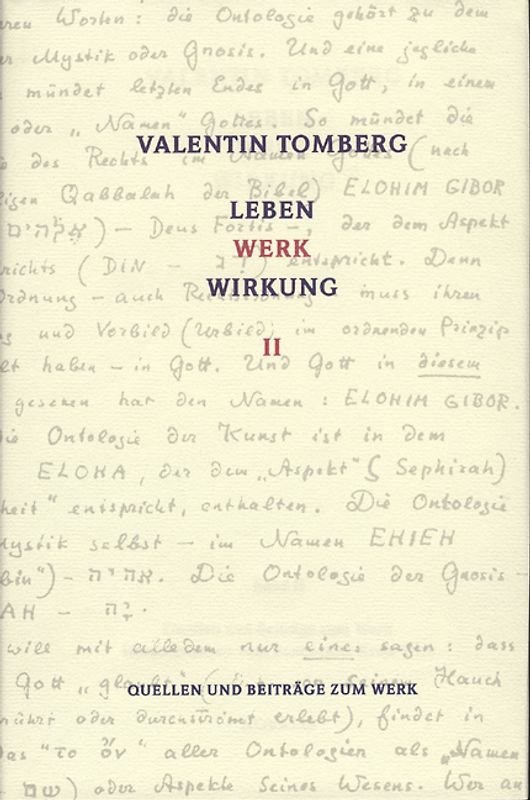 ren Worten: die Ontologie gehört zu dem
er Mystik oder Gnosis. Und eine jegliche
mündet letzten Endes in Gott, in einem
oder „Namen" Gottes. So mündet die
VALENTIN TOMBERG
e des Rechts im Namen Gottes (nach
ligen Qabbalah der Bibel) ELOHIM GIBOR
LEBEN
אֱלֹהִים) – Deus Fortis –, der dem Aspekt
WERK
richts (DIN – דין) entspricht. Denn
WIRKUNG
Ordnung – auch Rechtsordnung – muss ihren
und Vorbild (Urbild) im ordnenden Prinzip
II
lt haben – in Gott. Und Gott in diesem
gesehen hat den Namen: ELOHIM GIBOR.
die Ontologie der Kunst ist in dem
ELOHA, der dem „Aspekt" (Sephirah)
heit" entspricht, enthalten. Die Ontologie
Mystik selbst – im Namen EHIEH
bin") – אהיה. Die Ontologie der Gnosis –
AH – יָה.
will mit alledem nur eines sagen: dass
Gott „glaubt" seinem Hauch
QUELLEN UND BEITRÄGE ZUM WERK
rührt oder durchströmt erlebt), findet in
das "τὸ ὄν" aller Ontologien als „Namen
שם) oder Aspekte Seines Wesens. Wer an